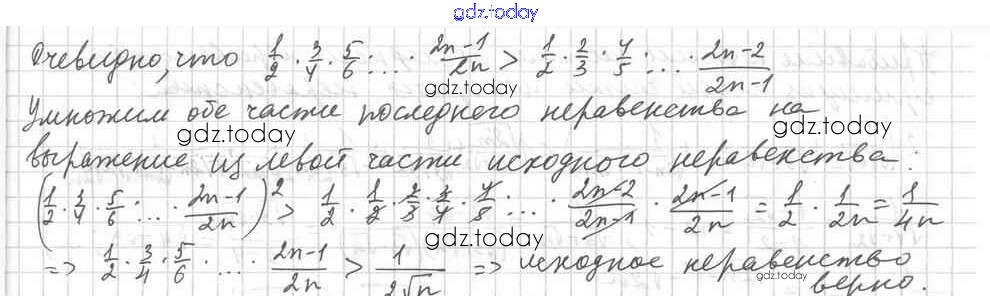 gdz.today
Очевидно, что 1/2 · 3/4 · 5/6 · ... · (2n-1)/2n > 1/2 · 2/3 · 4/5 · ... · (2n-2)/(2n-1)
gdz.today
Умножим обе части последнего неравенства на
gdz.today gdz.today
выражение из левой части исходного неравенства:
gdz.today
(1/2 · 3/4 · 5/6 · ... · (2n-1)/2n)² > 1/2 · 1/2 · 2/3 · 3/4 · 4/5 · ... · (2n-2)/(2n-1) · (2n-1)/2n = 1/2 · 1/2n = 1/4n
gdz.today
=> 1/2 · 3/4 · 5/6 · ... · (2n-1)/2n > 1/(2√n) => исходное неравенство
gdz.today
верно.